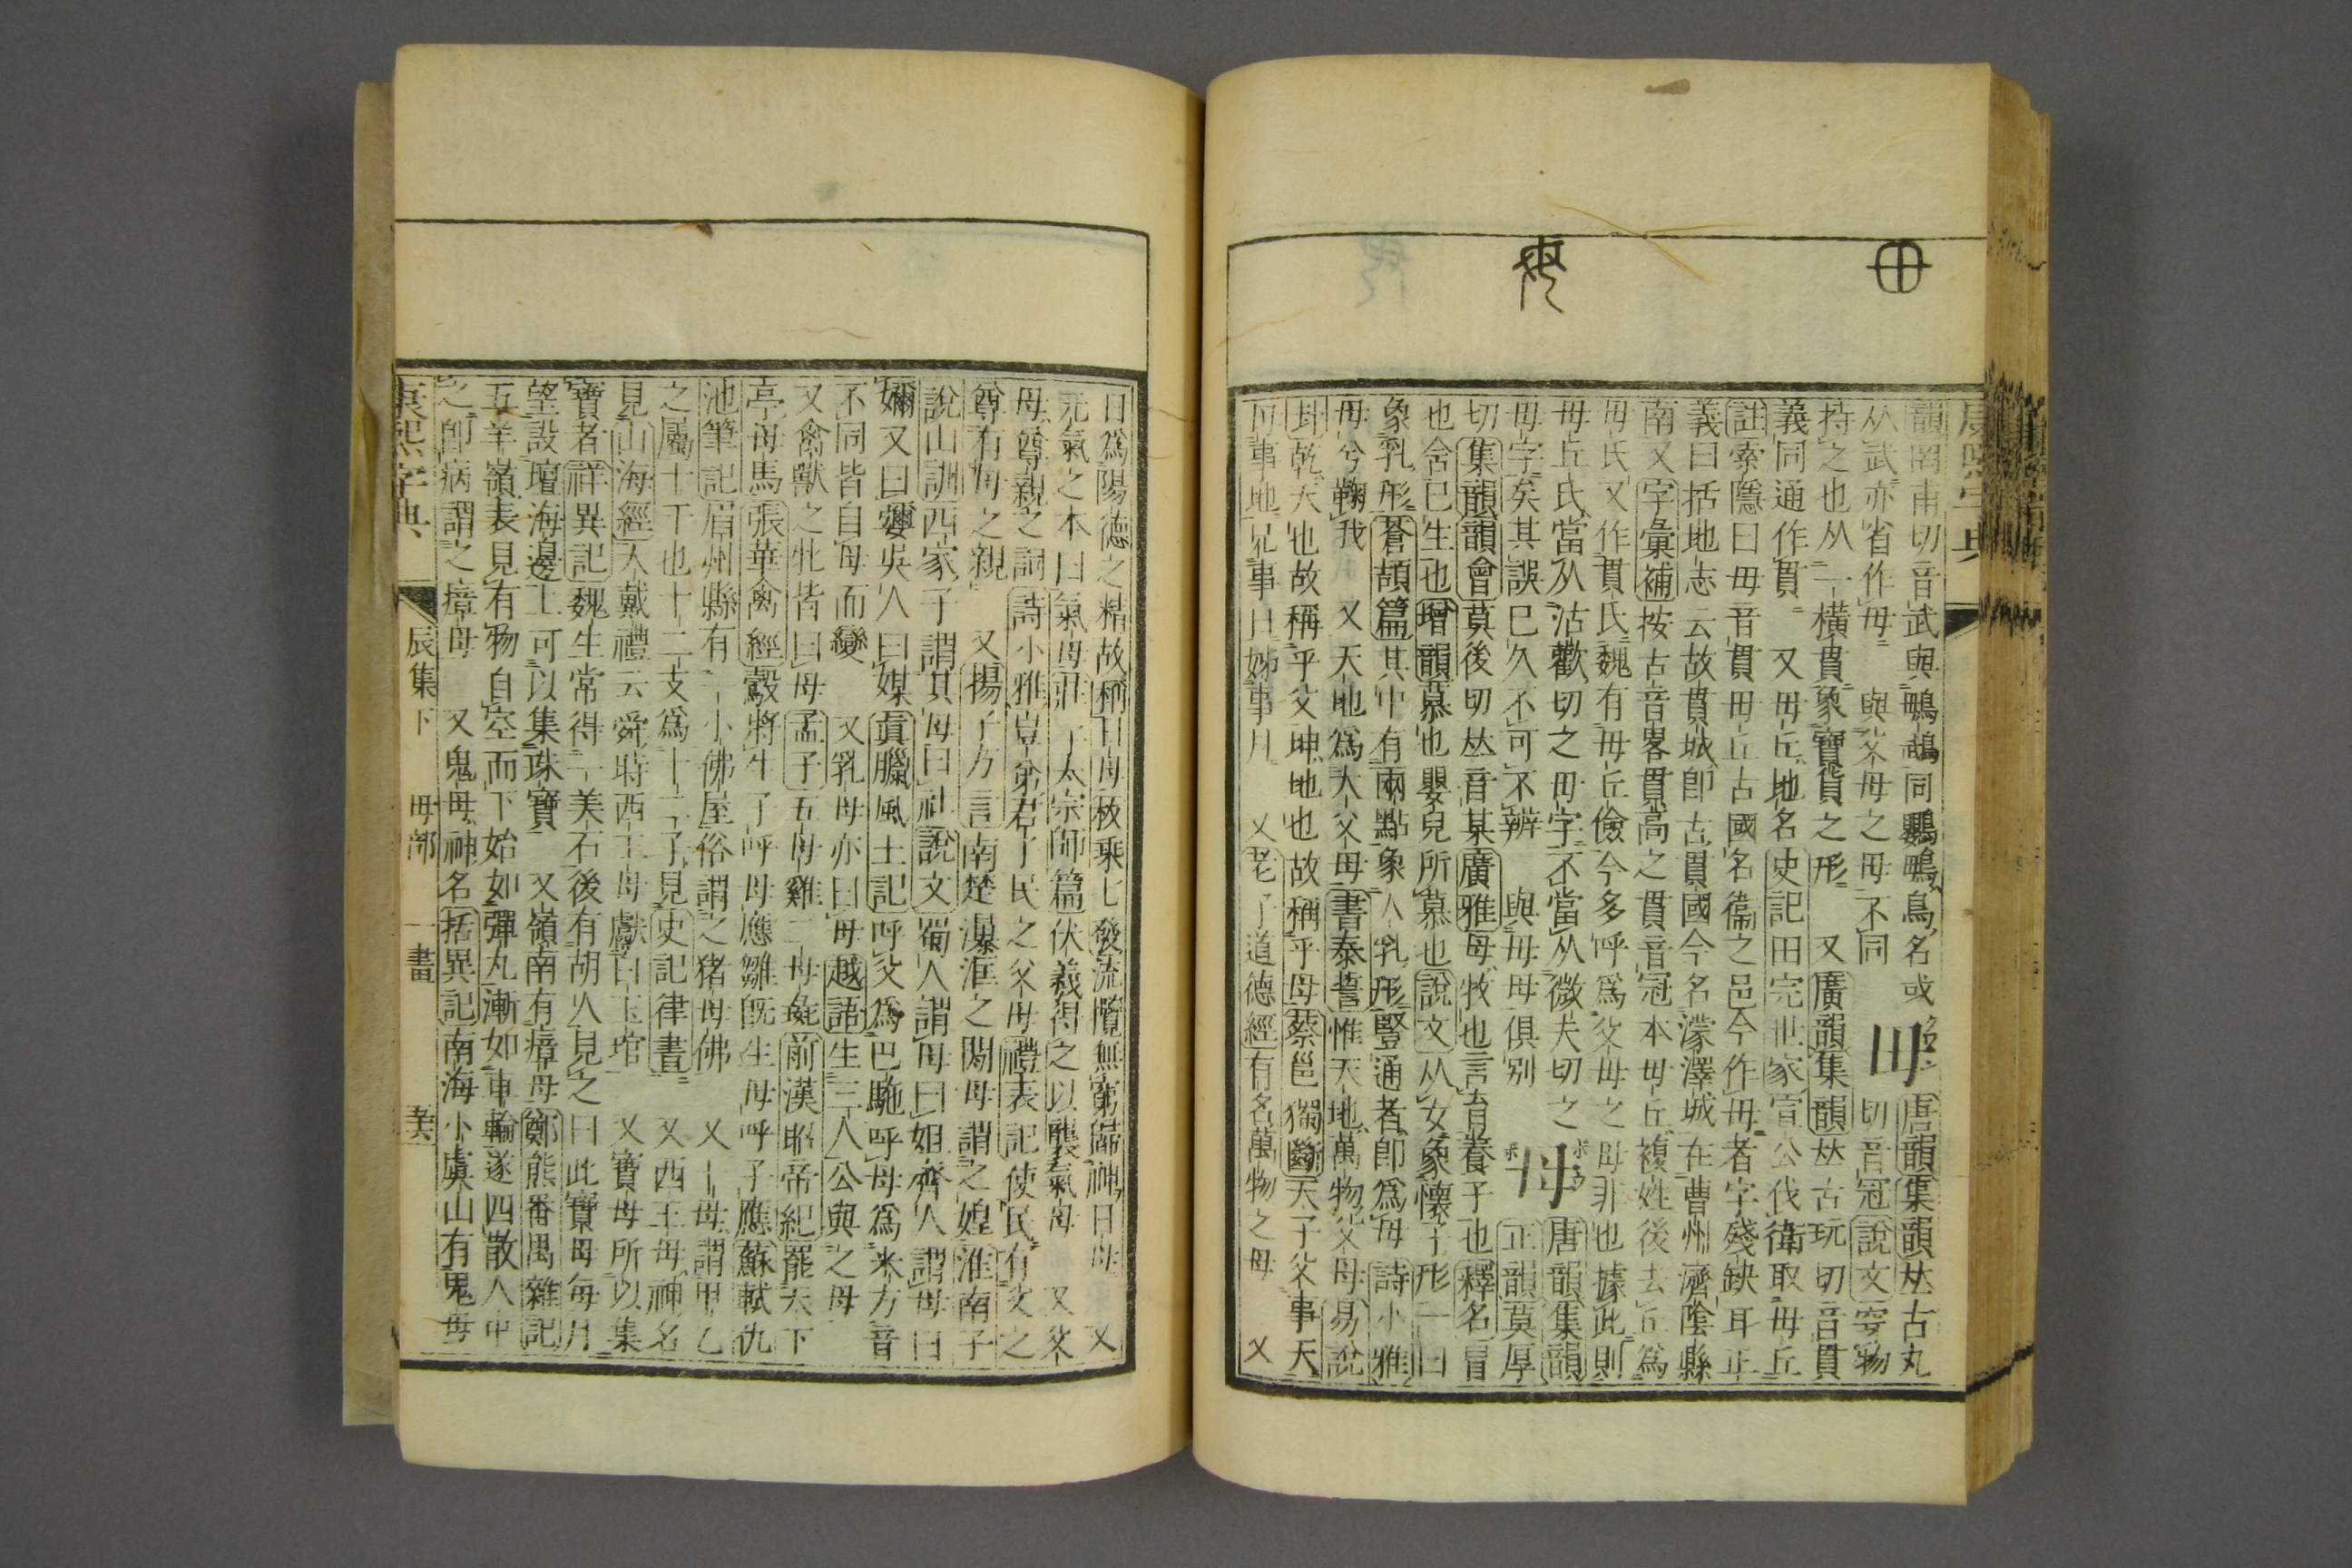 康熙字典
韻罔甫切音武與鴟鵡同鸚鴟鳥名或
从武亦省作毋 與父母之母不同 毌 唐韻集韻𠀤古丸切音冠說文穿物
持之也从一橫貫象寶貨之形 又廣韻集韻𠀤古玩切音貫
義同通作貫 又毌丘地名史記田完世家宣公伐衛取毌丘
註索隱曰毌音貫毌丘古國名衞之邑今作毋者字殘缺耳正
義曰括地志云故貫城卽古貫國今名濛澤城在曹州濟陰縣
南又字彙補按古音畧貫高之貫音冠本毌丘複姓後去丘爲
毌氏又作貫氏魏有毌丘儉今多呼爲父母之母非也據此則
毌丘氏當从沽歡切之毌字不當从微夫切之
毋字矣其誤已久不可不辨 與毋母俱别 母 唐韻集韻正韻莫厚
切集韻韻會莫後切𠀤音某廣雅母牧也言育養子也釋名冒
也含已生也增韻慕也嬰兒所慕也說文从女象懷子形一曰
象乳形蒼頡篇其中有兩點象人乳形豎通者卽爲毋詩小雅
母兮鞠我 又天地爲大父母書泰誓惟天地萬物父母易說
卦乾天也故稱乎父坤地也故稱乎母蔡邕獨斷天子父事天
母事地兄事日姊事月 又老子道德經有名萬物之母 又
日爲陽德之精故稱日母枚乘七發流攬無窮歸神日母 又
元氣之本曰氣母莊子太宗師篇伏義得之以襲氣母 又父
母尊親之詞詩小雅豈弟君子民之父母禮表記使民有父之
尊有母之親 又揚子方言南楚瀑洭之閒母謂之媓淮南子
說山訓西家子謂其母曰社說文蜀人謂母曰姐齊人謂母曰
嬭又曰㜷吳人曰媒眞臘風土記呼父爲巴駞呼母爲米方音
不同皆自母而變 又乳母亦曰母越語生三人公與之母
又禽獸之牝皆曰母孟子五母雞二母彘前漢昭帝紀罷天下
亭母馬張華禽經鷇將生子呼母應雛旣生母呼子應蘇軾仇
池筆記眉州縣有一小佛屋俗謂之猪母佛 又十母謂甲乙
之屬十干也十二支爲十二子見史記律書 又西王母神名
見山海經大戴禮云舜時西王母獻白玉琯 又寶母所以集
寶者祥異記魏生常得一美石後有胡人見之曰此寶母每月
望設壇海邊上可以集珠寶 又嶺南有瘴母鄭熊番禺雜記
五羊嶺表見有物自空而下始如彈丸漸如車輪遂四散人中
之卽病謂之瘴母 又鬼母神名括異記南海小虞山有鬼母
康熙字典 辰集下 毋部 一畫